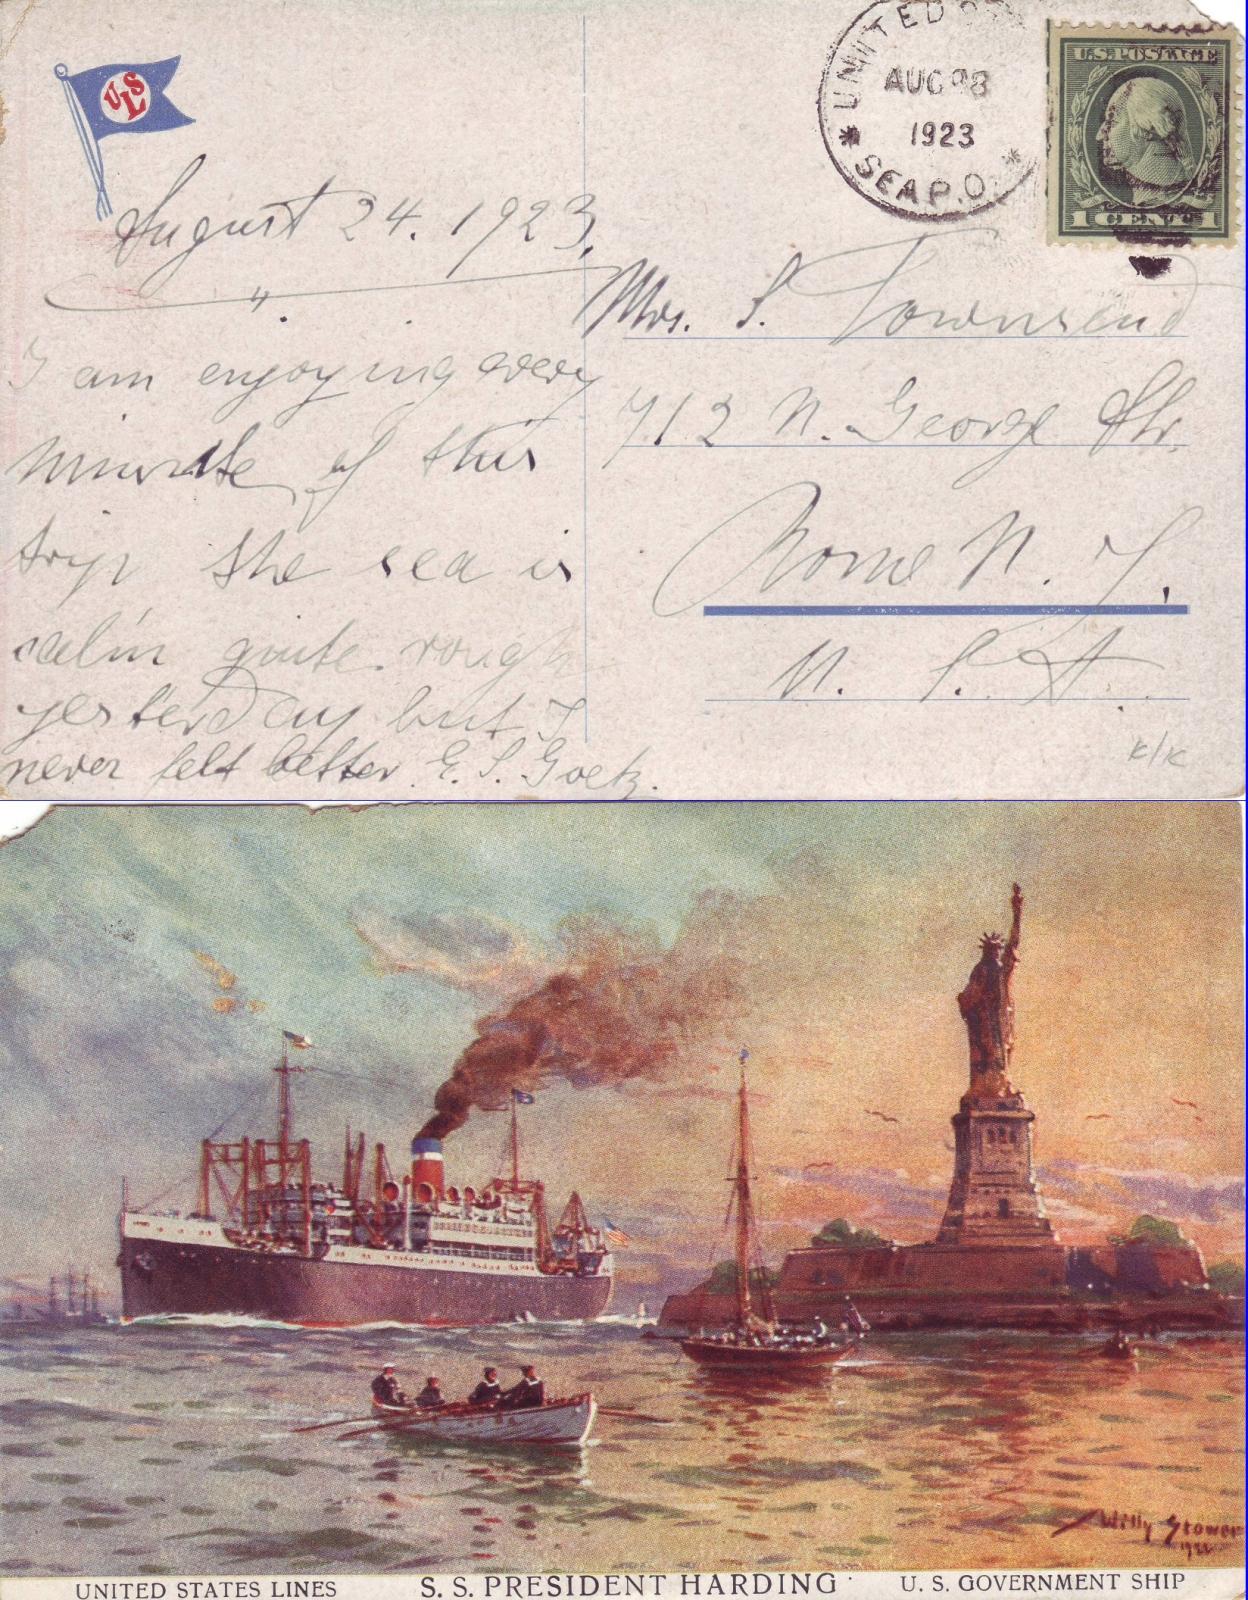 USL
UNITED
AUG 28
1923
SEA P.O.
U.S. POSTAGE
1 CENT 1
August 24. 1923.
".
I am enjoying every
minute of this
trip the sea is
calm quite rough
yesterday but I
never felt better. E. S. Goetz.
Mrs. S. Townsend
712 N. George Str.
Rome N. Y.
U. S. A.
K/K
Willy Stower
1922
UNITED STATES LINES S. S. PRESIDENT HARDING U. S. GOVERNMENT SHIP